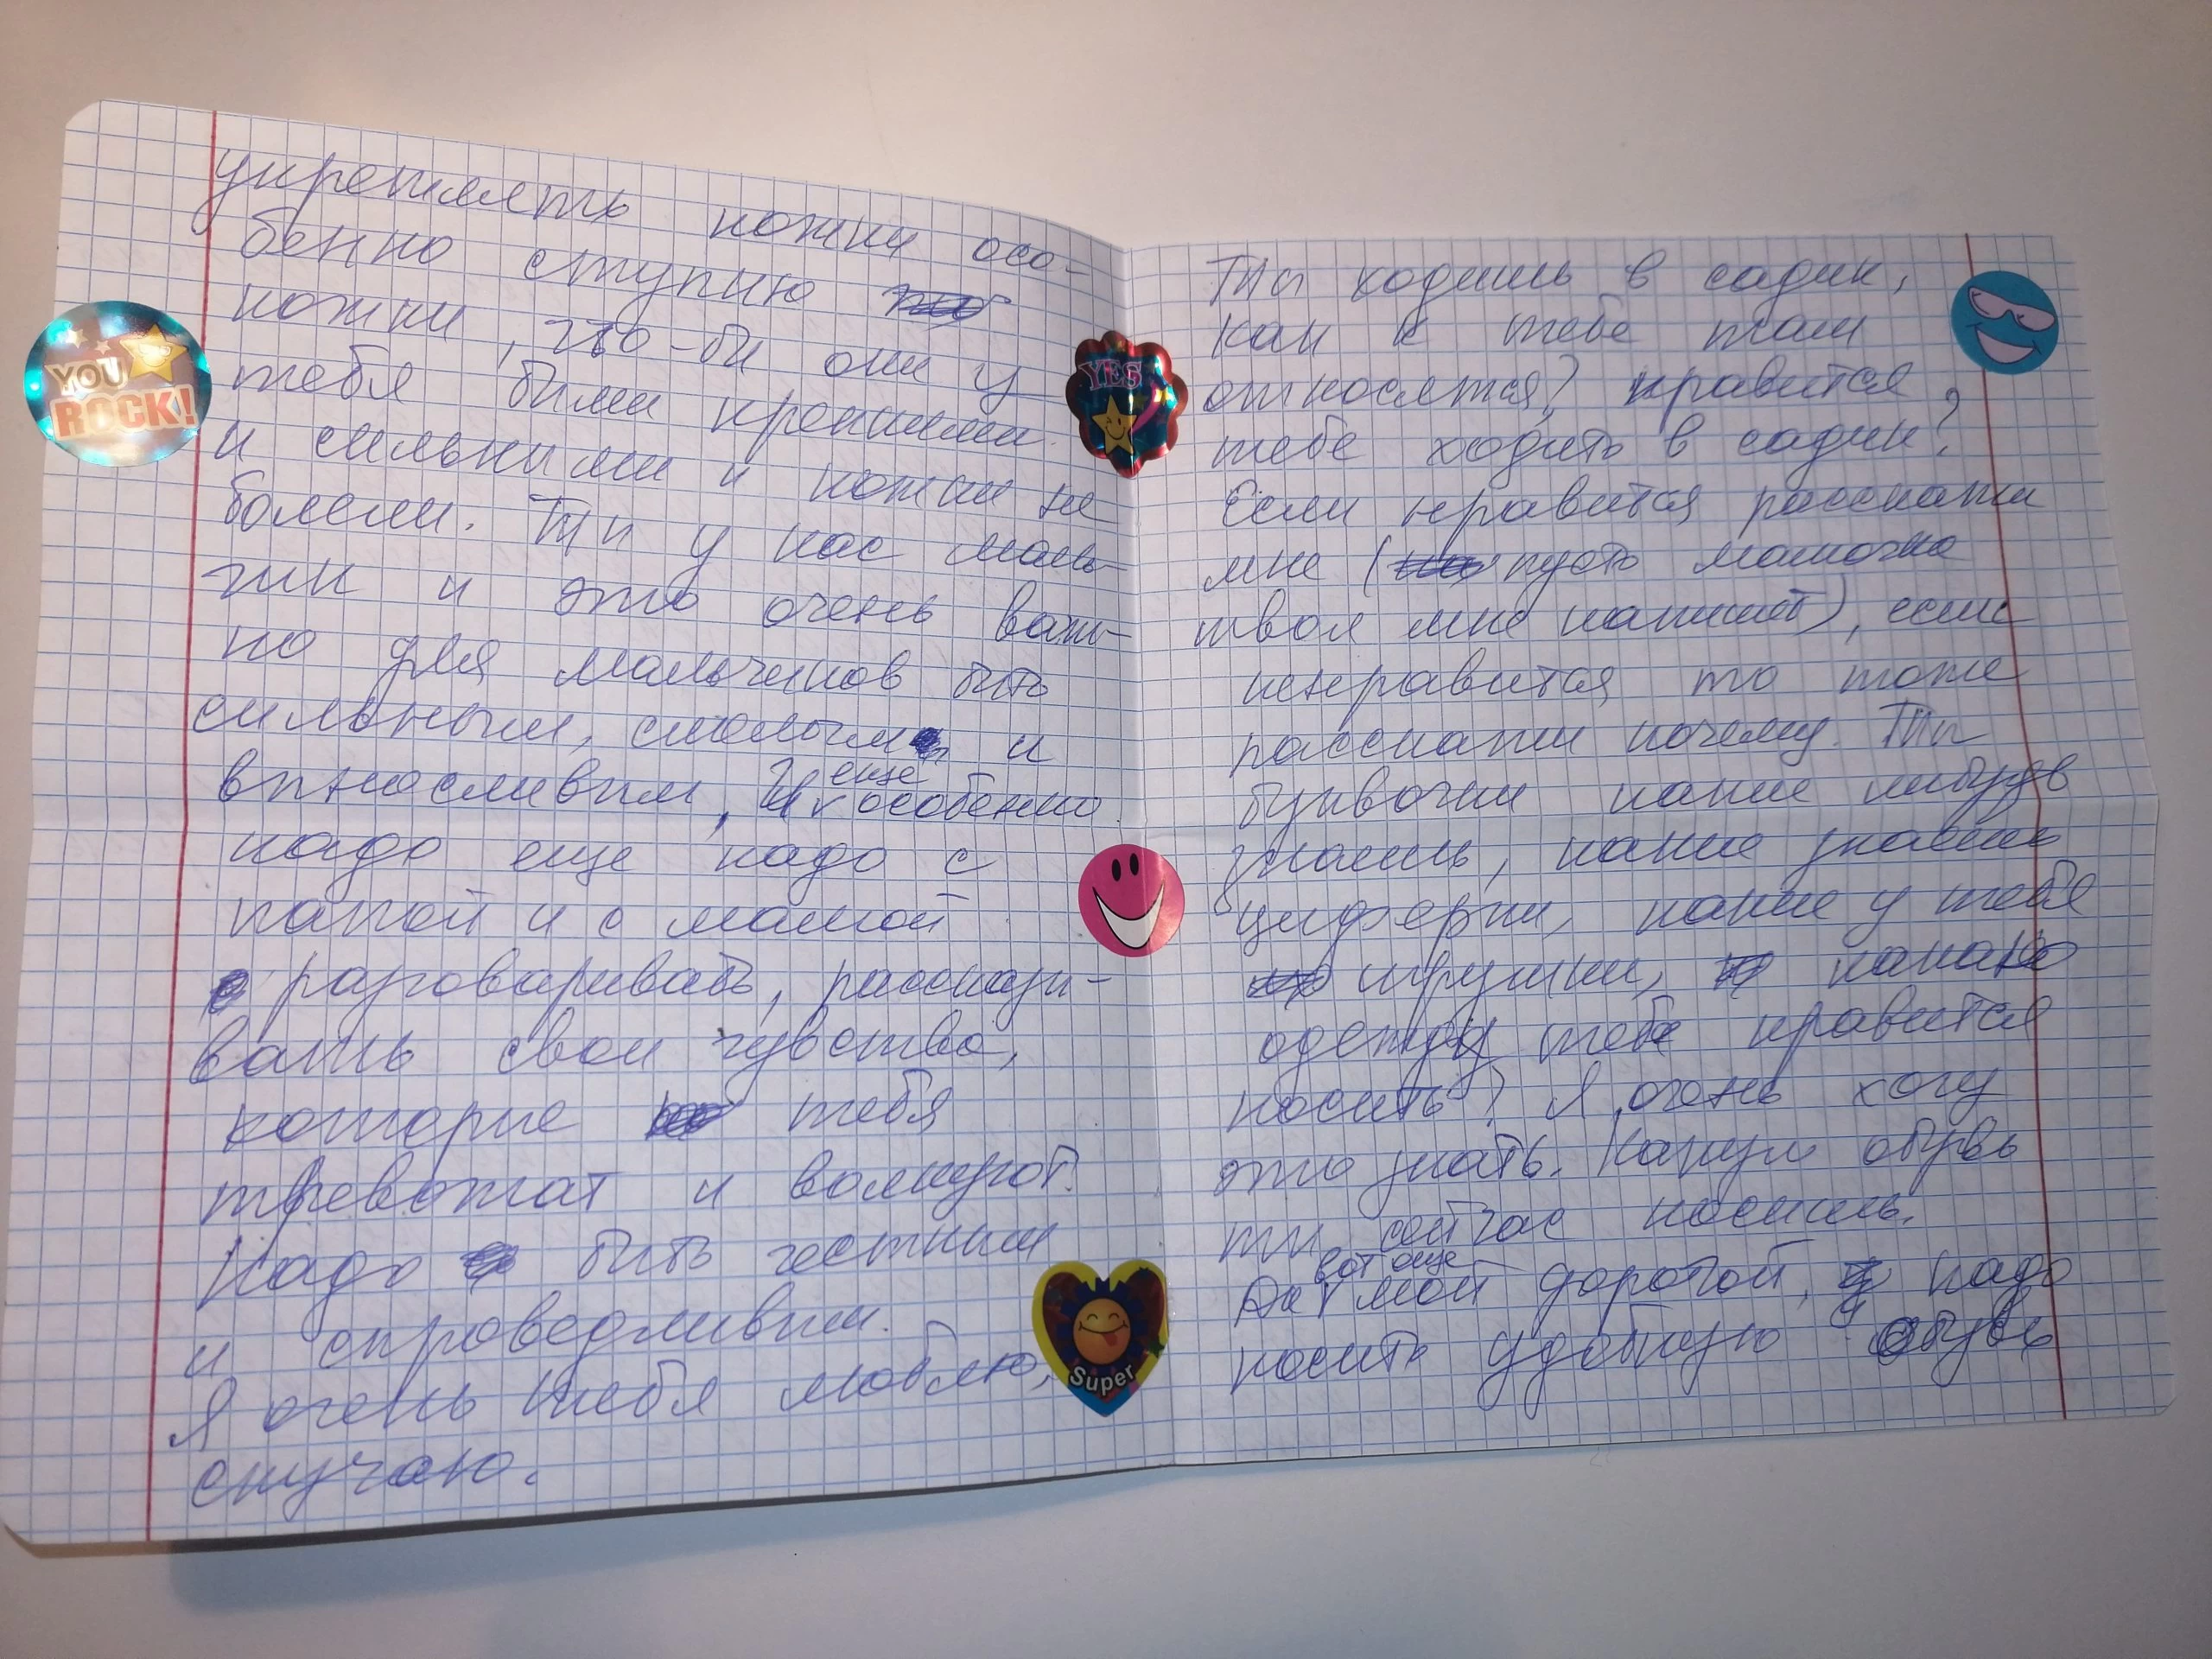 укреплять ножки осо-
бенно ступню
ножки, что-бы они у
тебя были крепкими
и сильными и ножки не
болели. Ты у нас маль-
чик и это очень важ-
но для мальчиков быть
сильным, смелым и
выносливым, И еще особенно
надо еще надо с
папой и с мамой
разговаривать, рассказы-
вать свои чувства,
которые тебя
тревожат и волнуют.
Надо быть честным
и справедливым.
Я очень тебя люблю,
скучаю.
YOU
ROCK!
YES
Super
Ты ходишь в садик,
как к тебе там
относятся? нравится
тебе ходить в садик?
Если нравится расскажи
мне (пусть мамочка
твоя мне напишет), если
ненравится то тоже
расскажи почему. Ты
буквочки какие нибудь
знаешь, какие знаешь
циферки, какие у тебя
игрушки, какаю
одежду тебе нравится
носить? Я очень хочу
это знать. Какую обувь
ты сейчас носишь.
Да вот еще мой дорогой, надо
носить удобную обувь